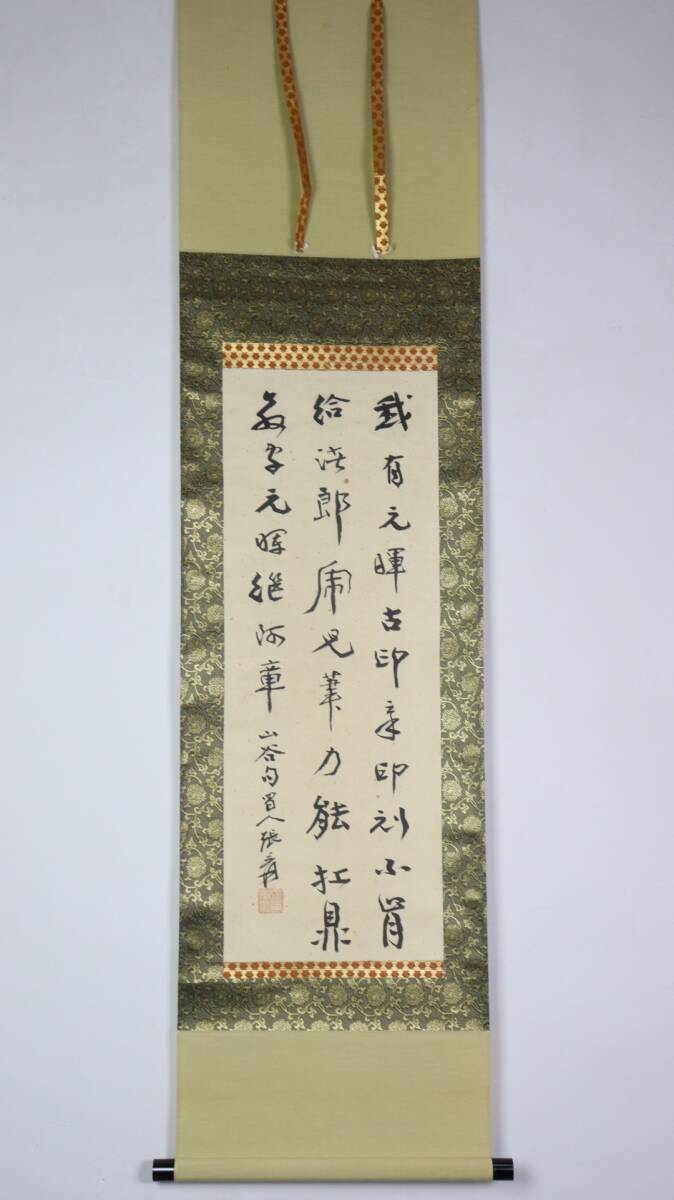 我有元暉古印章印刓不肯
給諸郎虎兒筆力能扛鼎
教字元暉繼阿章
山谷句蜀人張爰